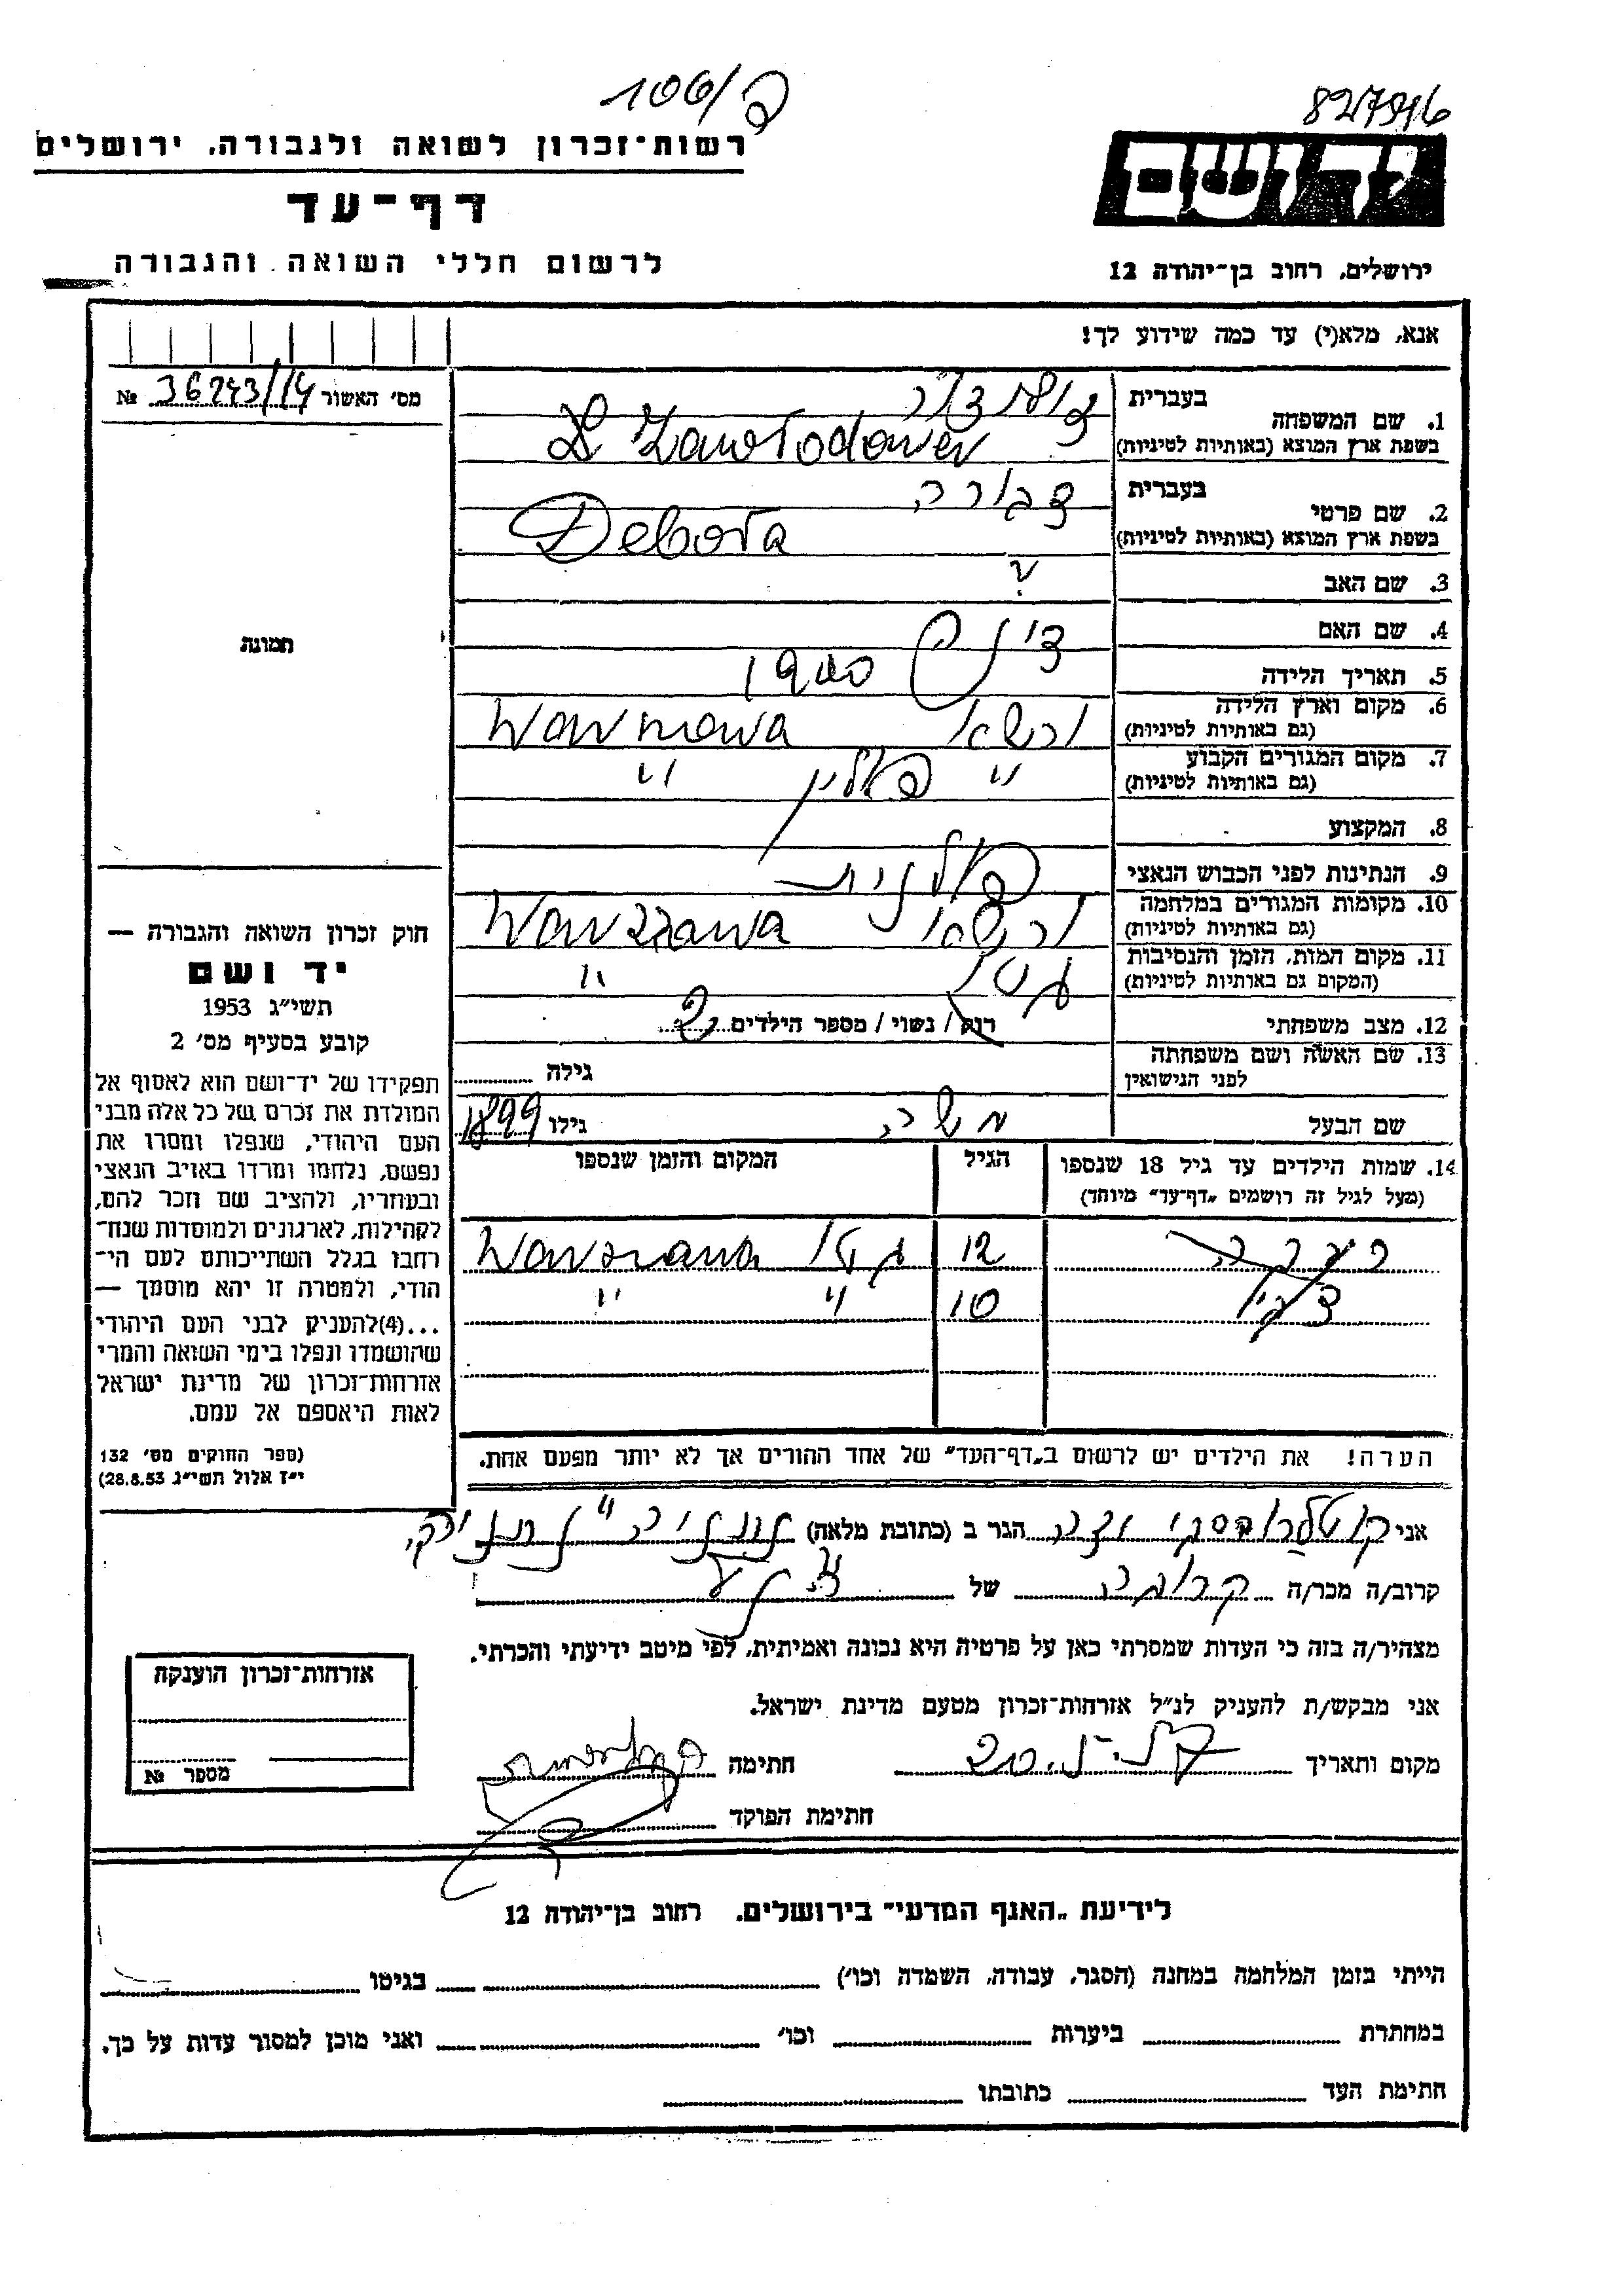 106/פ
827916
רשות-זכרון לשואה ולגבורה, ירושלים
יד ושם
דף-עד
לרשום חללי השואה והגבורה
ירושלים, רחוב בן-יהודה 12
אנא, מלא(י) עד כמה שידוע לך!
מס' האשור 36243/14 №
1. שם המשפחה
בעברית
בשפת ארץ המוצא (באותיות לטיניות)
2. שם פרטי
בעברית דבורה
בשפת ארץ המוצא (באותיות לטיניות) Debora
3. שם האב ?
4. שם האם
5. תאריך הלידה 1900
6. מקום וארץ הלידה ורשא Warszawa
(גם באותיות לטיניות)
7. מקום המגורים הקבוע " פולין "
(גם באותיות לטיניות)
8. המקצוע
9. הנתינות לפני הכבוש הנאצי פולנית
10. מקומות המגורים במלחמה ורשא Warszawa
(גם באותיות לטיניות)
11. מקום המות, הזמן והנסיבות גטו "
(המקום גם באותיות לטיניות)
12. מצב משפחתי רווק / נשוי / מספר הילדים 2
13. שם האשה ושם משפחתה
לפני הנישואין גילה
שם הבעל משה גילו 1899
14. שמות הילדים עד גיל 18 שנספו
(מעל לגיל זה רושמים "דף-עד" מיוחד)
הגיל
המקום והזמן שנספו
12 גטו Warszawa
10 " "
הערה! את הילדים יש לרשום ב"דף-העד" של אחד ההורים אך לא יותר מפעם אחת.
תמונה
חוק זכרון השואה והגבורה —
יד ושם
תשי"ג 1953
קובע בסעיף מס' 2
תפקידו של יד-ושם הוא לאסוף אל
המולדת את זכרם של כל אלה מבני
העם היהודי, שנפלו ומסרו את
נפשם, נלחמו ומרדו באויב הנאצי
ובעוזריו, ולהציב שם וזכר להם,
לקהילות, לארגונים ולמוסדות שנח-
רחבו בגלל השתייכותם לעם הי-
הודי, ולמטרה זו יהא מוסמך —
...(4)להעניק לבני העם היהודי
שהושמדו ונפלו בימי השואה והמרי
אזרחות-זכרון של מדינת ישראל
לאות היאספם אל עמם.
(ספר החוקים מס' 132
י"ז אלול תשי"ג 28.8.53)
אני הגר ב (כתובת מלאה)
קרוב/ה מכר/ה קרובה של
מצהיר/ה בזה כי העדות שמסרתי כאן על פרטיה היא נכונה ואמיתית, לפי מיטב ידיעתי והכרתי.
אני מבקש/ת להעניק לנ"ל אזרחות-זכרון מטעם מדינת ישראל.
מקום ותאריך חתימה
חתימת הפוקד
אזרחות-זכרון הוענקה
מספר №
לידיעת "האגף המדעי" בירושלים. רחוב בן-יהודה 12
הייתי בזמן המלחמה במחנה (הסגר, עבודה, השמדה וכו') בגיטו
במחתרת ביערות וכו' ואני מוכן למסור עדות על כך.
חתימת העד כתובתו